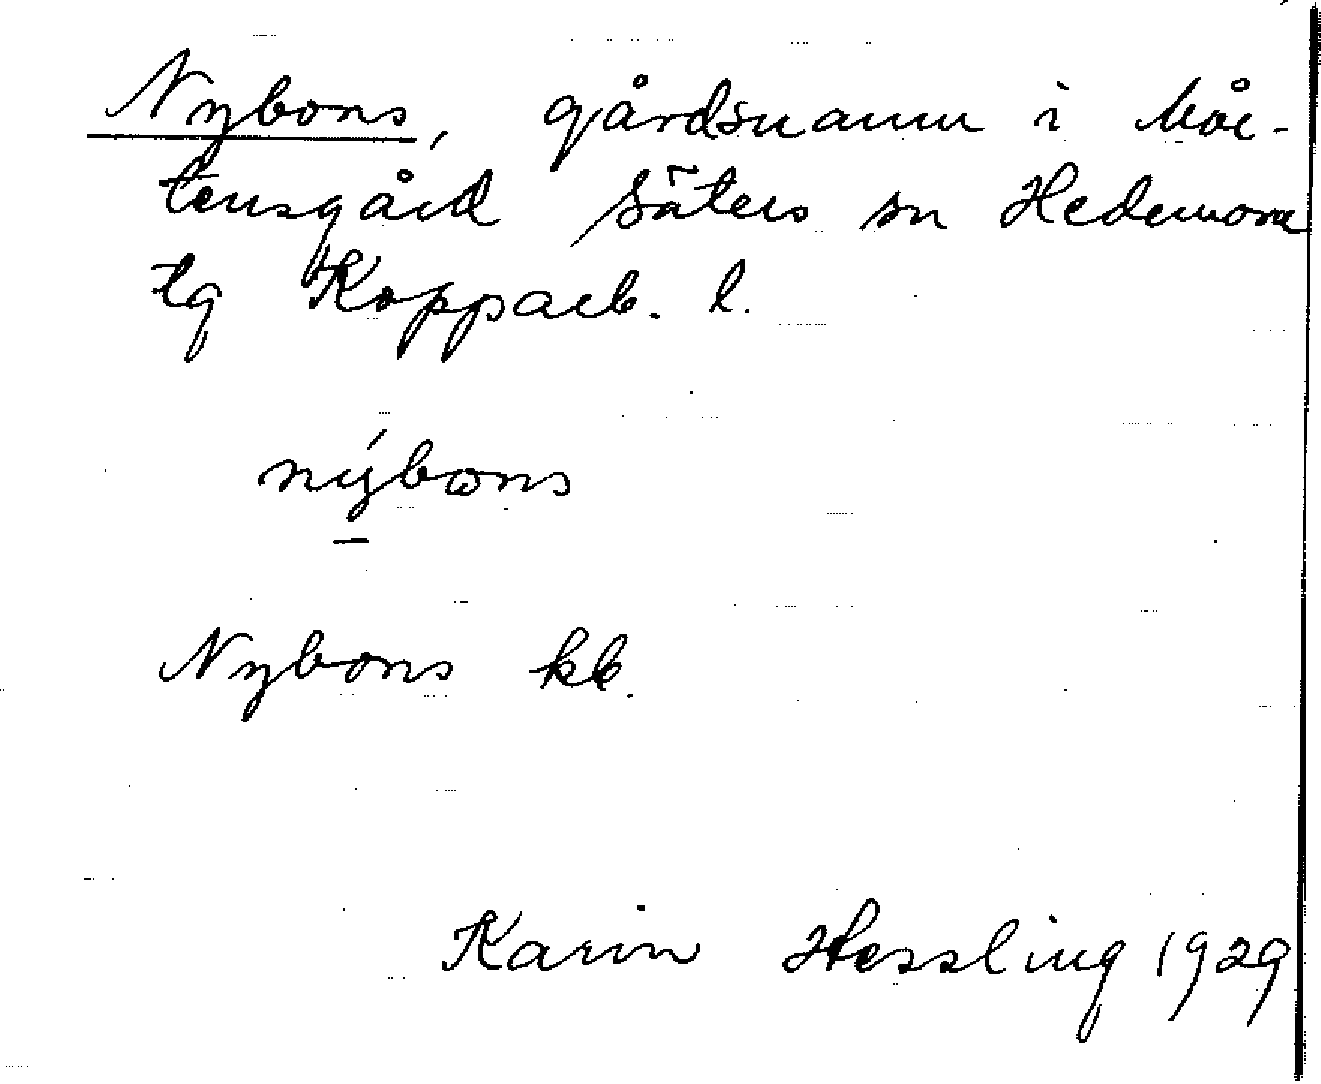 Nybons, gårdsnamn i Mår-
tensgård Säters sn Hedemora
tg Kopparb. l.
nýbons
Nybons kb.
Karin Hessling 1929